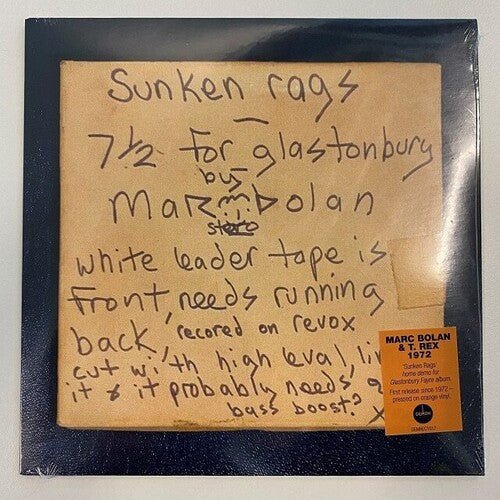 Sunken rags
7½ for glastonbury
by
Marc Bolan
stereo
white leader tape is
front, needs running
back, recored on revox
cut with high leval, lim
it & it probably needs, a
bass boost? x
MARC BOLAN
& T. REX
1972
'Sunken Rags'
home demo for
Glastonbury Fayre album.
First release since 1972 –
pressed on orange vinyl.
DEMON